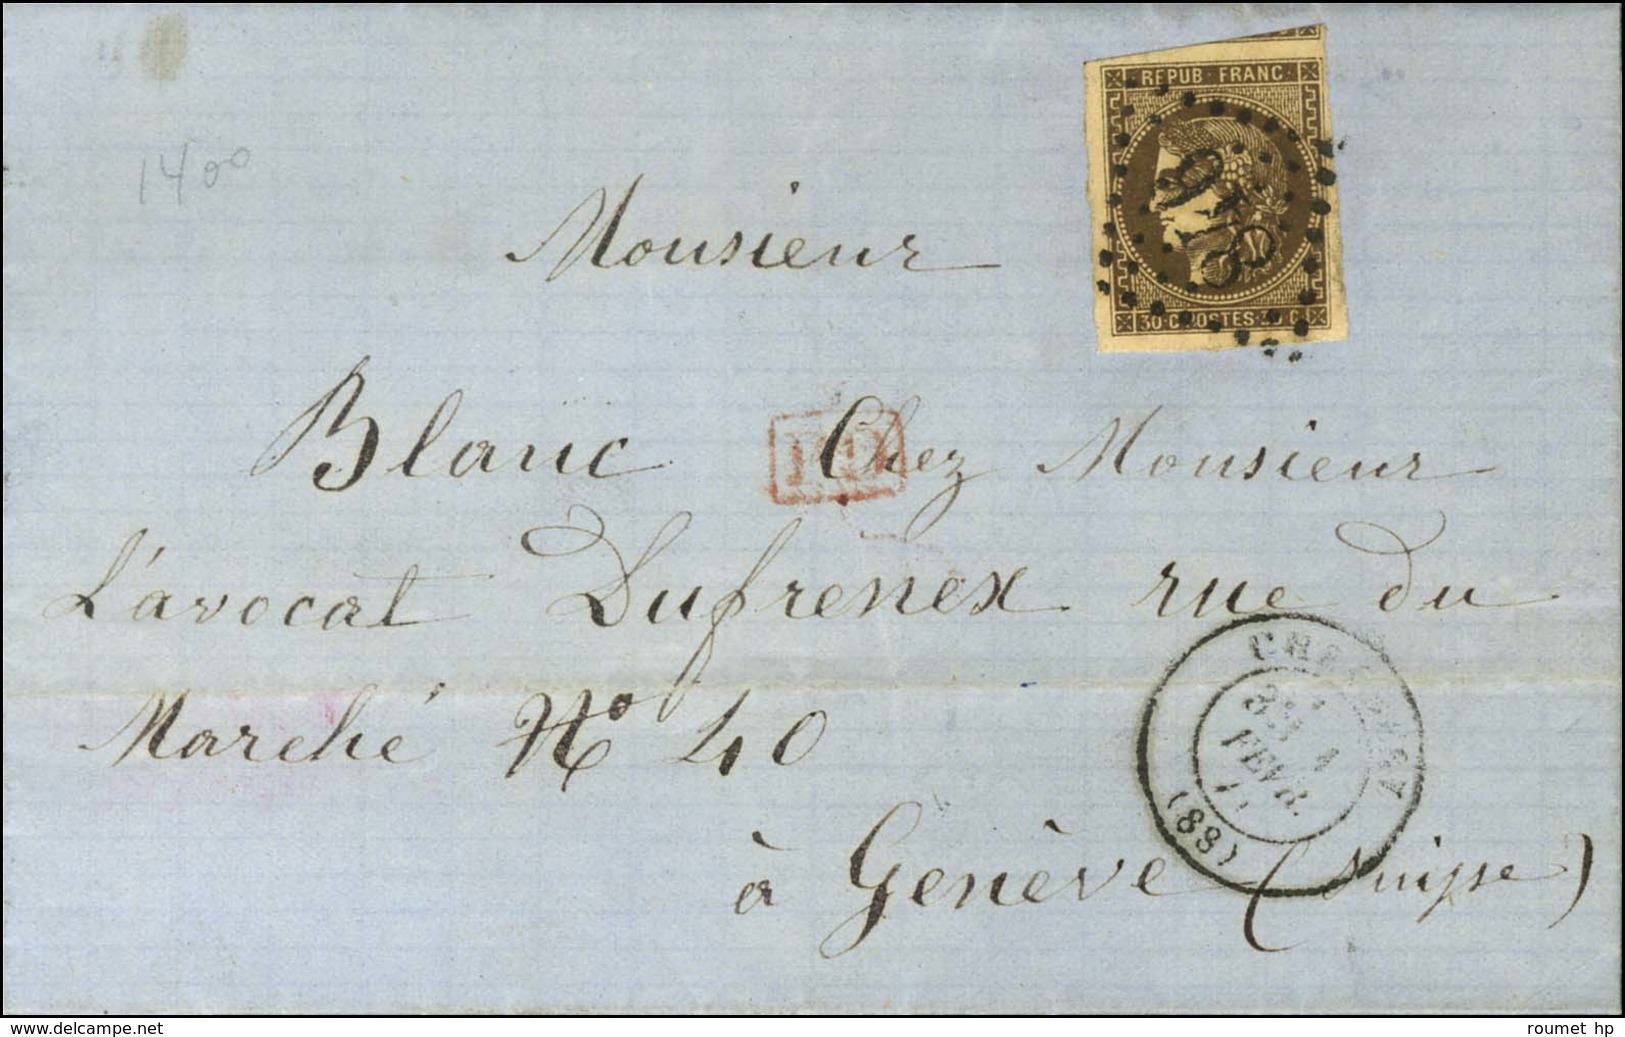 1400
REPUB · FRANC
30 · C · POSTES · 30 C
Monsieur
Blanc Chez Monsieur
PD
L'avocat Dufrenex rue du
Marché N° 40
à Genève (Suisse)
FEVR.
(88)
www.delcampe.net
roumet hp